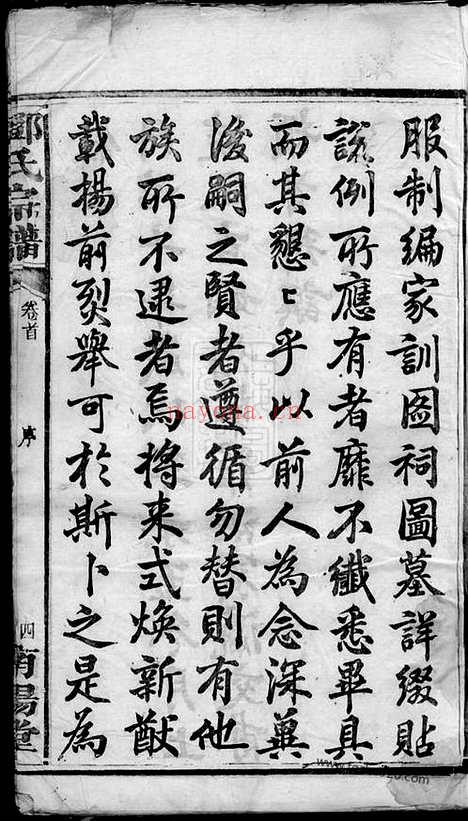 服制編家訓圖祠圖墓詳綴貼
說例所應有者靡不纖悉畢具
而其懇〻乎以前人為念深冀
後嗣之賢者遵循勿替則有他
族所不逮者焉將来式煥新猷
載揚前烈舉可於斯卜之是為
鄧氏宗譜
卷首
序
四
南陽堂
nayona.cn